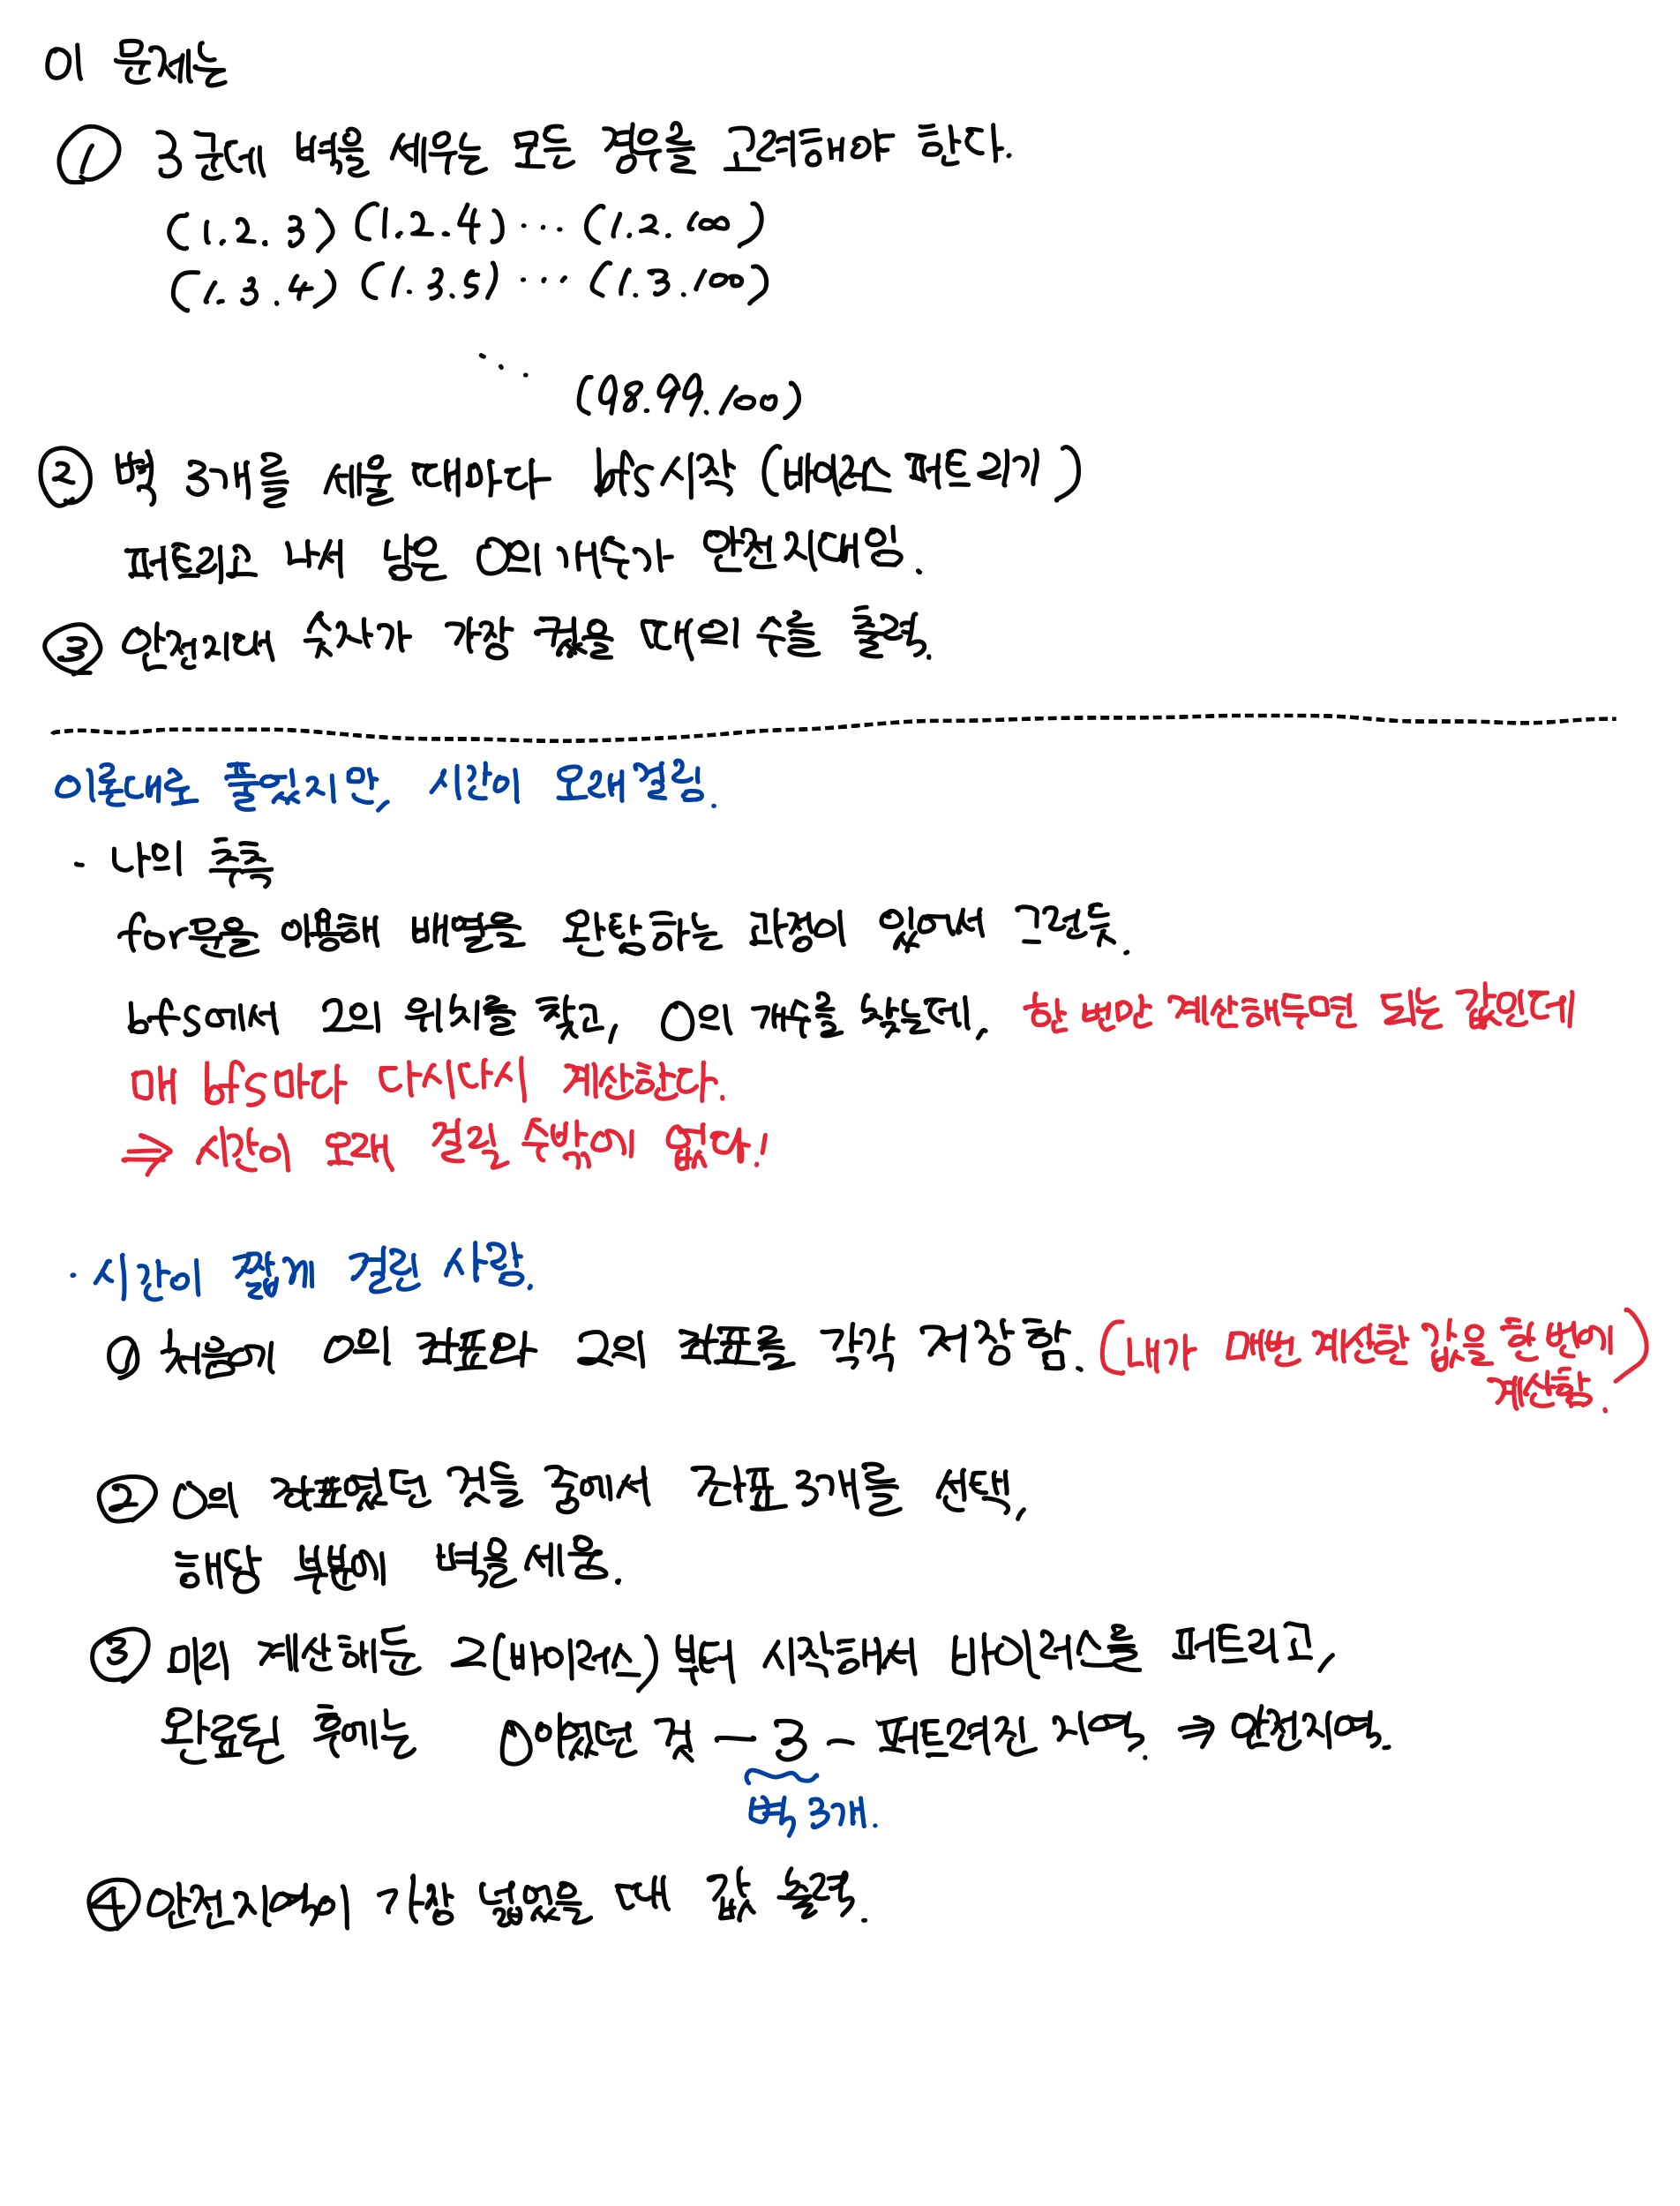 이 문제는
① 3군데 벽을 세우는 모든 경우을 고려해야 한다.
(1.2.3) (1.2.4) ... (1.2.100)
(1.3.4) (1.3.5) ... (1.3.100)
...
(98.99.100)
② 벽 3개를 세울 때마다 bfs시작 (바이러스 퍼트리기)
퍼트리고 나서 남은 0의 개수가 안전지대임.
③ 안전지대 숫자가 가장 컸을 때의 수를 출력.
이론대로 풀었지만, 시간이 오래걸림.
· 나의 추측
for문을 이용해 배열을 완탐하는 과정이 있어서 그런듯.
bfs에서 2의 위치를 찾고, 0의 개수를 찾는데, 한 번만 계산해두면 되는 값인데
매 bfs마다 다시다시 계산한다.
⇒ 시간이 오래 걸릴 수밖에 없다!
· 시간이 짧게 걸린 사람.
① 처음에 0의 좌표와 2의 좌표를 각각 저장함. (내가 매번 계산한 값을 한 번에
계산함.)
② 0의 좌표였던 것들 중에서 좌표 3개를 선택,
해당 부분에 벽을 세움.
③ 미리 계산해둔 2(바이러스)부터 시작해서 바이러스를 퍼트리고,
완료된 후에는 0이었던 것 - 3 - 퍼트려진 지역. ⇒ 안전지역.
벽 3개.
④ 안전지역이 가장 넓었을 때 값 출력.